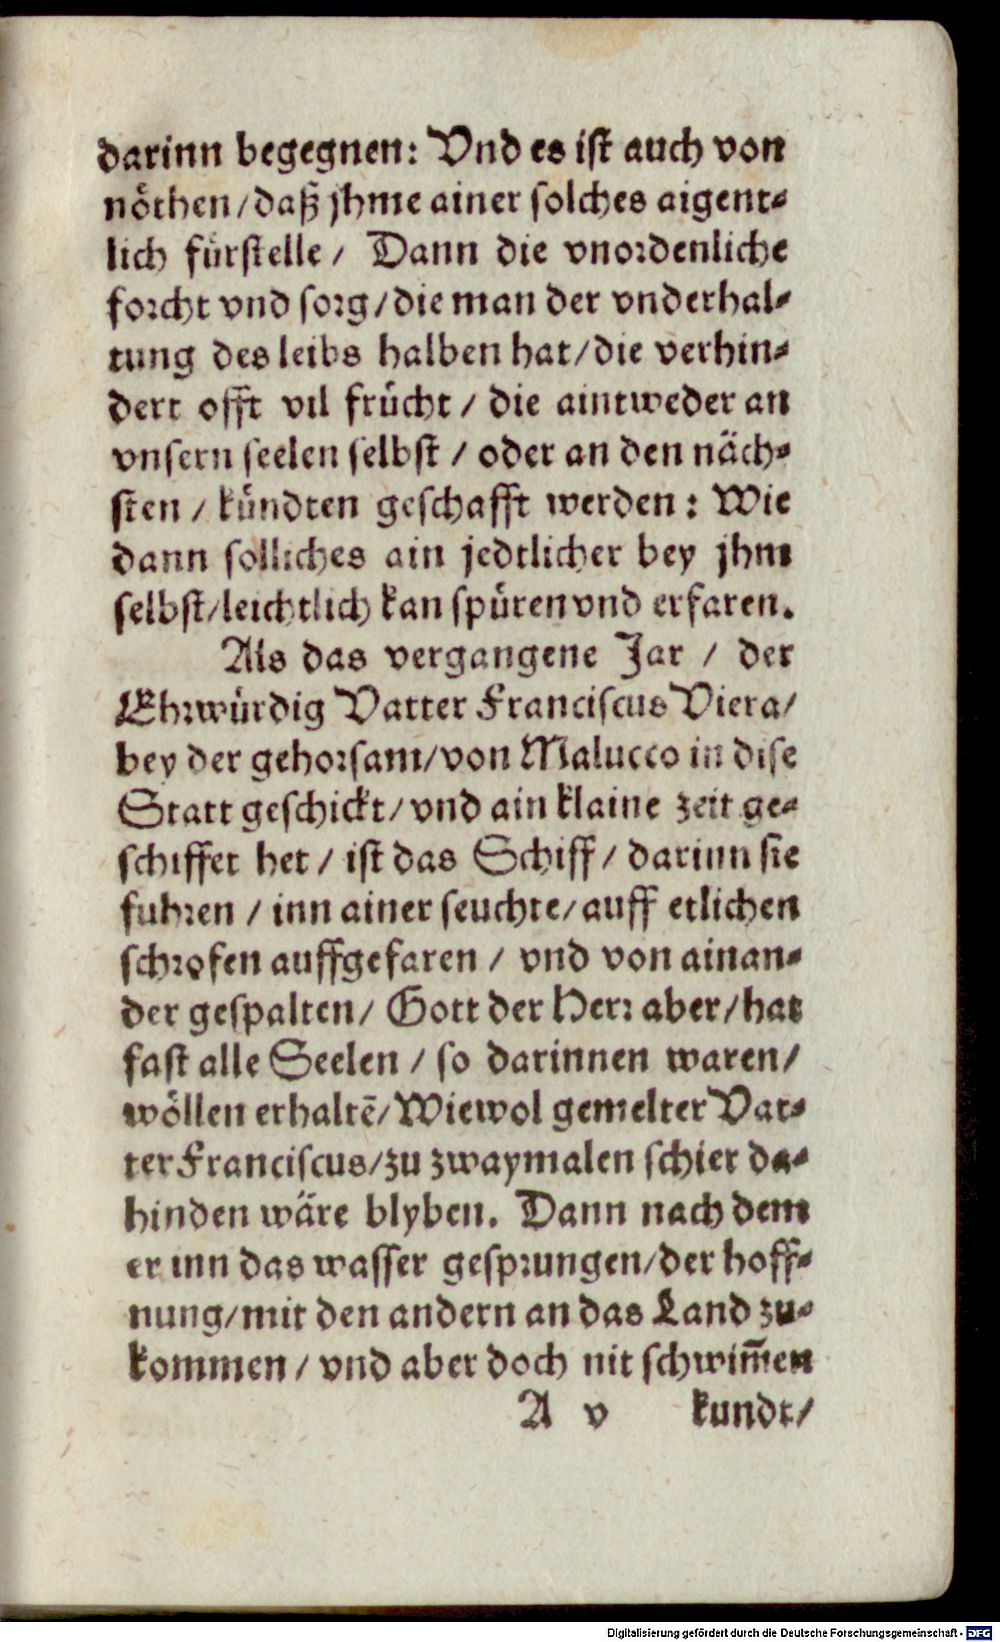 darinn begegnen: Vnd es ist auch von
nöthen/daß jhme ainer solches aigent-
lich fürstelle/ Dann die vnordenliche
forcht vnd sorg/die man der vnderhal-
tung des leibs halben hat/die verhin-
dert offt vil frücht / die aintweder an
vnsern seelen selbst / oder an den näch-
sten / kündten geschafft werden: Wie
dann solliches ain jedtlicher bey jhm
selbst/leichtlich kan spüren vnd erfaren.
Als das vergangene Jar / der
Ehrwürdig Vatter Franciscus Viera/
bey der gehorsam/von Malucco in dise
Statt geschickt/vnd ain klaine zeit ge-
schiffet het / ist das Schiff/ darinn sie
fuhren / inn ainer seuchte/auff etlichen
schrofen auffgefaren / vnd von ainan-
der gespalten/ Gott der Herr aber/hat
fast alle Seelen / so darinnen waren/
wöllen erhaltē/Wiewol gemelter Vat-
ter Franciscus/zu zwaymalen schier da-
hinden wäre blyben. Dann nach dem
er inn das wasser gesprungen/der hoff-
nung/mit den andern an das Land zu-
kommen / vnd aber doch nit schwim̄en
A v kundt/
Digitalisierung gefördert durch die Deutsche Forschungsgemeinschaft - DFG